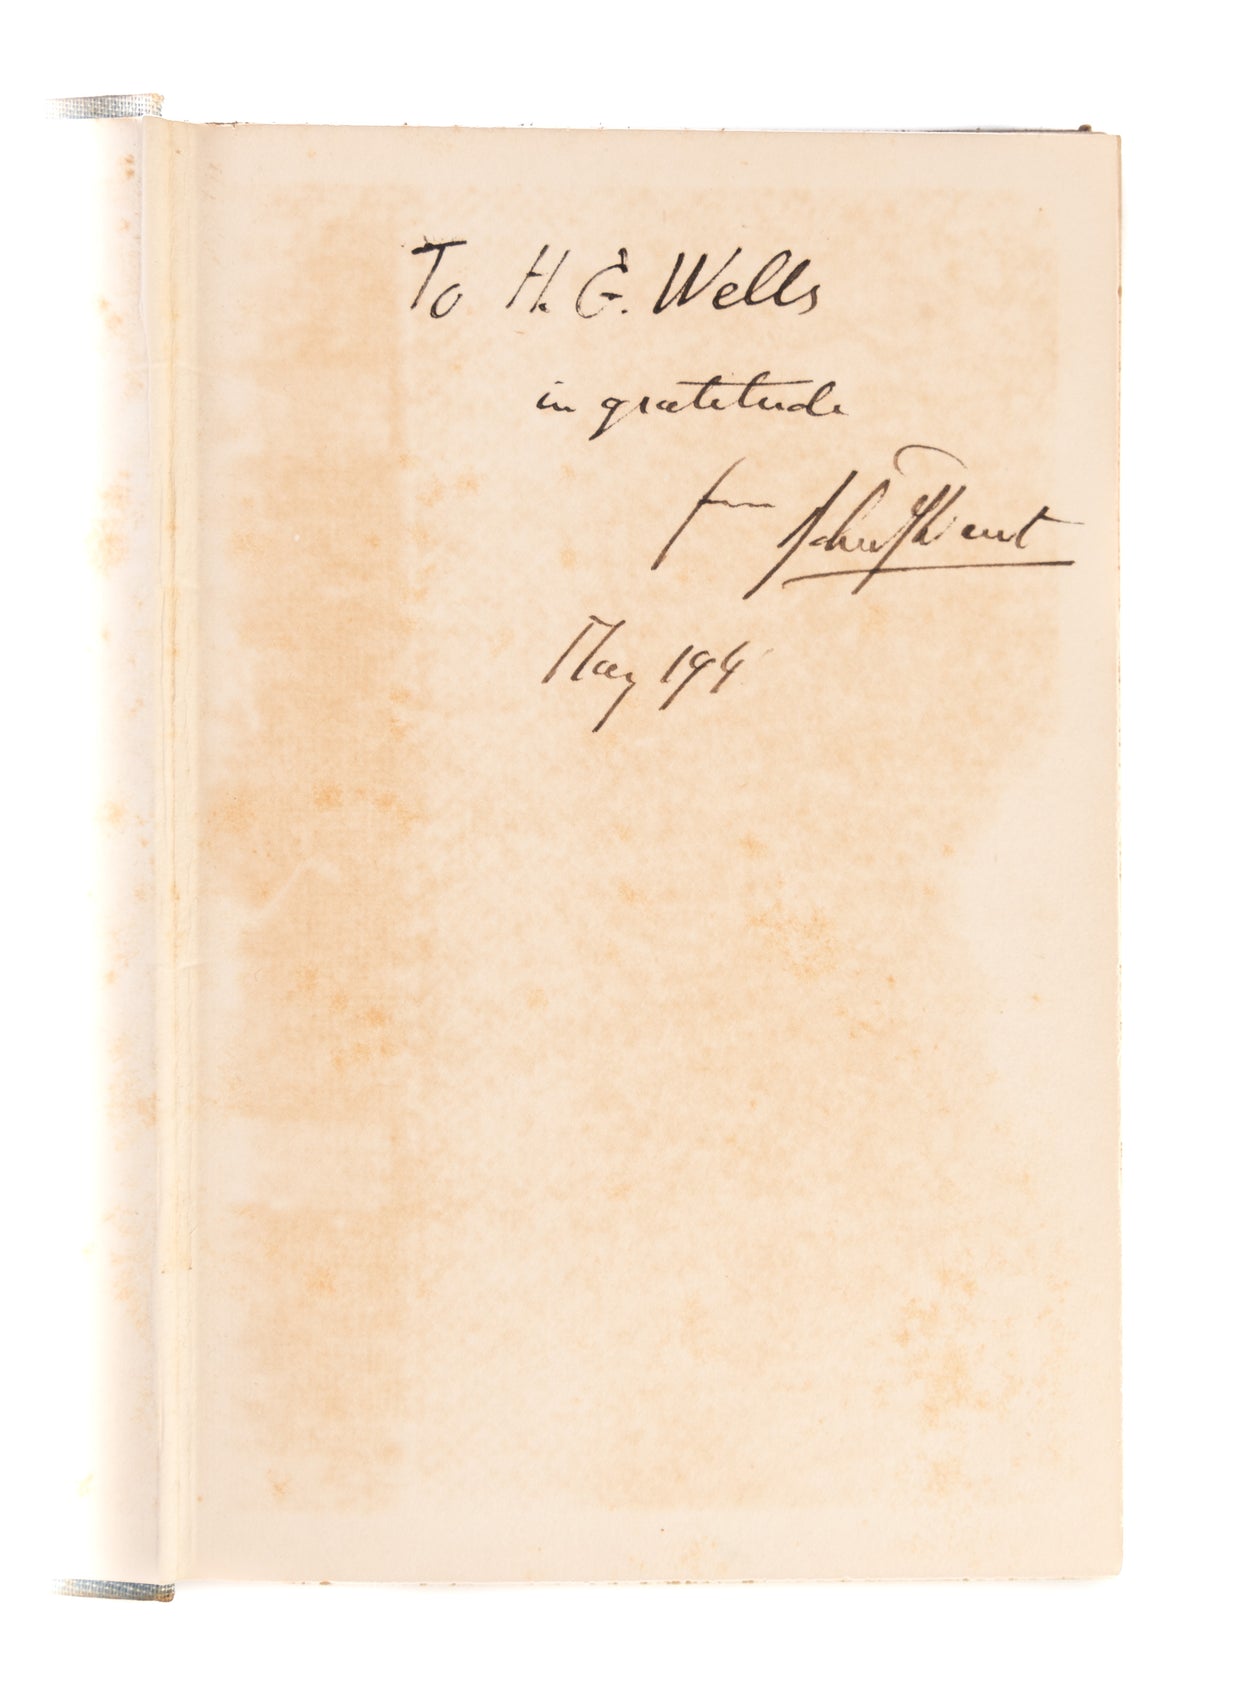 To H. G. Wells
in gratitude
from John
May 194